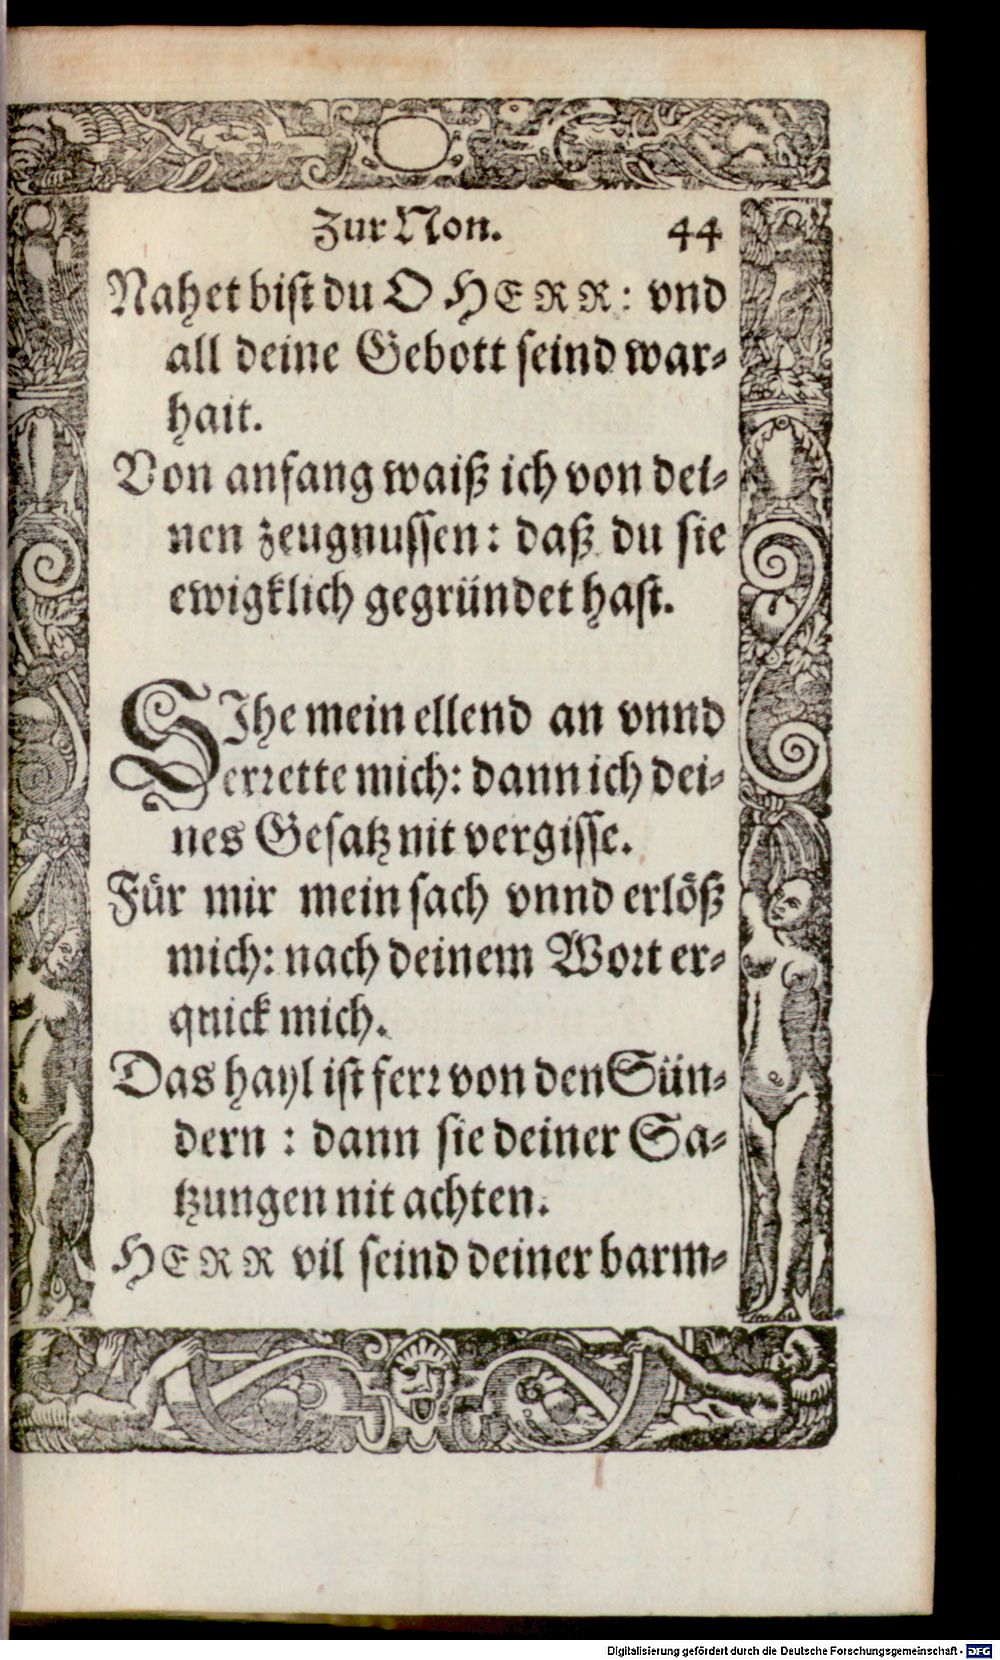 Zur Non. 44
Nahet bist du O HERR: vnd
all deine Gebott seind war⸗
hait.
Von anfang waiß ich von dei⸗
nen zeugnussen: daß du sie
ewigklich gegründet hast.
SIhe mein ellend an vnnd
errette mich: dann ich dei⸗
nes Gesatz nit vergisse.
Für mir mein sach vnnd erlöß
mich: nach deinem Wort er⸗
quick mich.
Das hayl ist ferr von den Sün⸗
dern : dann sie deiner Sa⸗
tzungen nit achten.
HERR vil seind deiner barm⸗
Digitalisierung gefördert durch die Deutsche Forschungsgemeinschaft - DFG